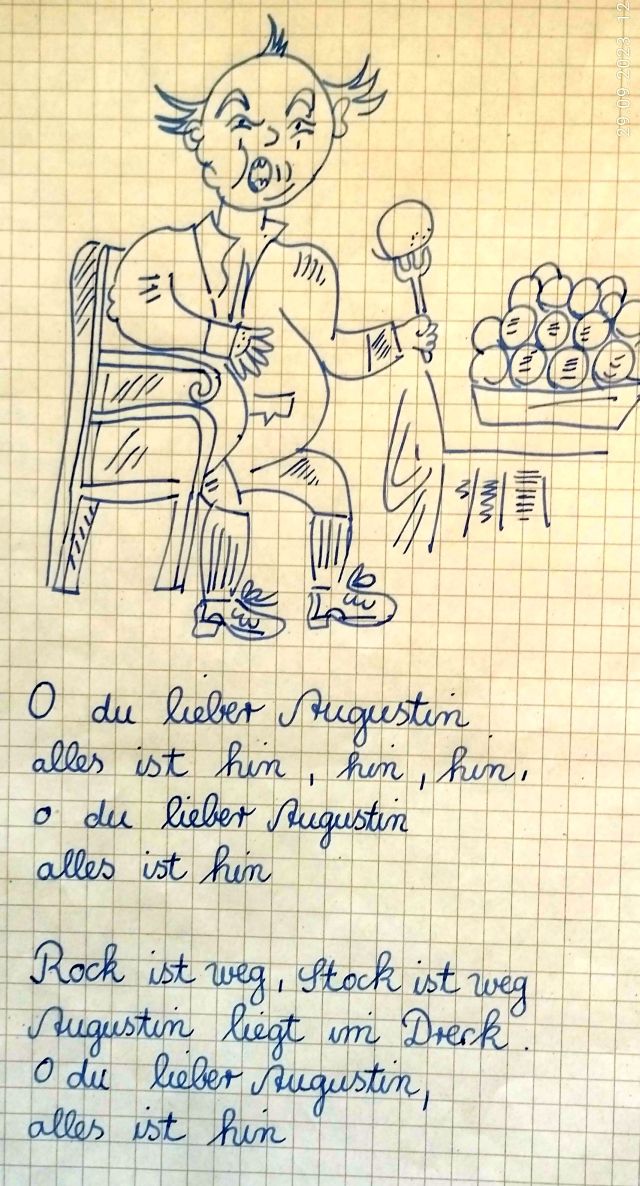 29.09.2023 12
O du lieber Augustin
alles ist hin, hin, hin.
o du lieber Augustin
alles ist hin
Rock ist weg, Stock ist weg
Augustin liegt im Dreck.
O du lieber Augustin,
alles ist hin